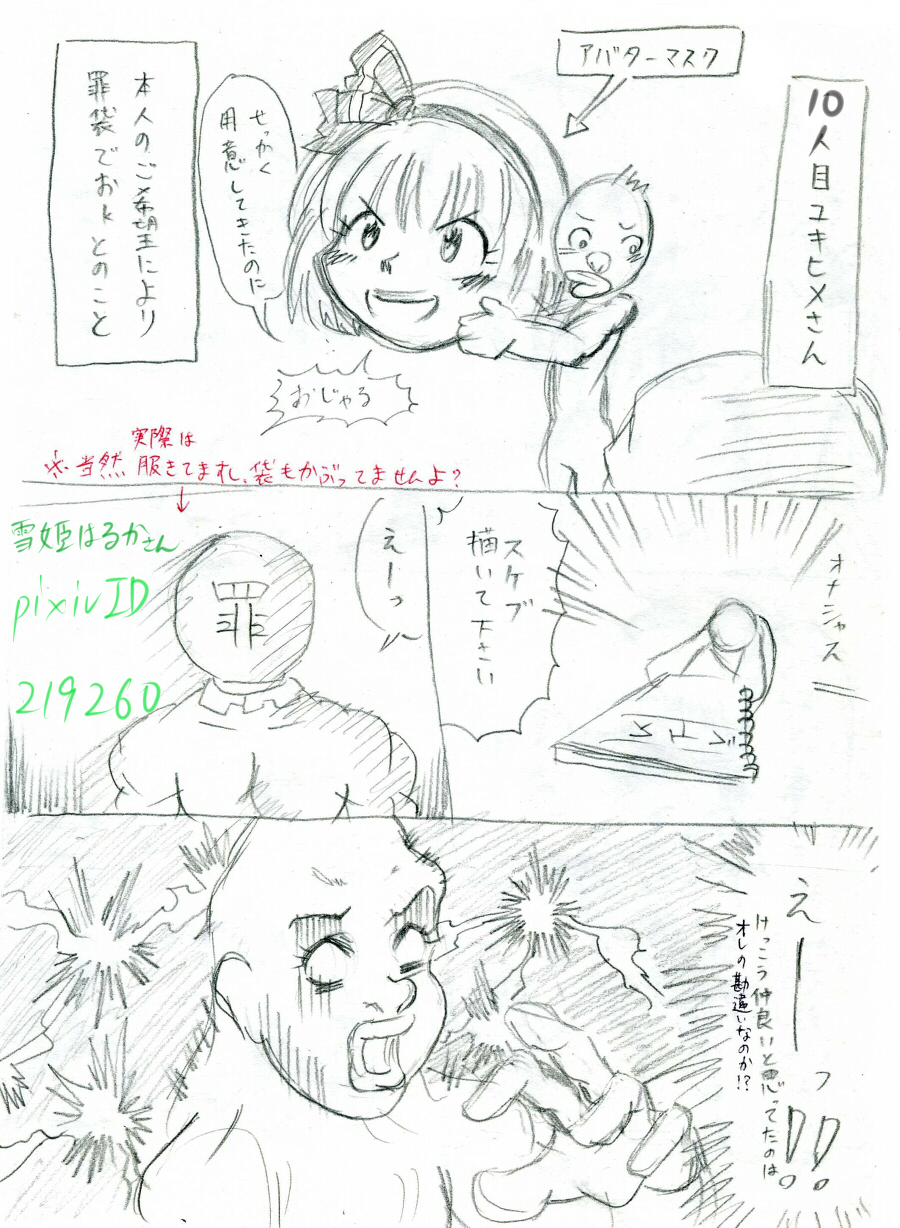 10人目ユキヒメさん
アバターマスク
せっかく
用意してきたのに
本人のご希望により
罪袋でおkとのこと
おじゃる
実際は
※当然 服きてますし、袋もかぶってませんよ?
オナシャス
スケブ
描いて下さい
えーっ
罪
雪姫はるかさん
pixivID
219260
えーーっ!!
けっこう仲良いと思ってたのは
オレの勘違いなのか!?